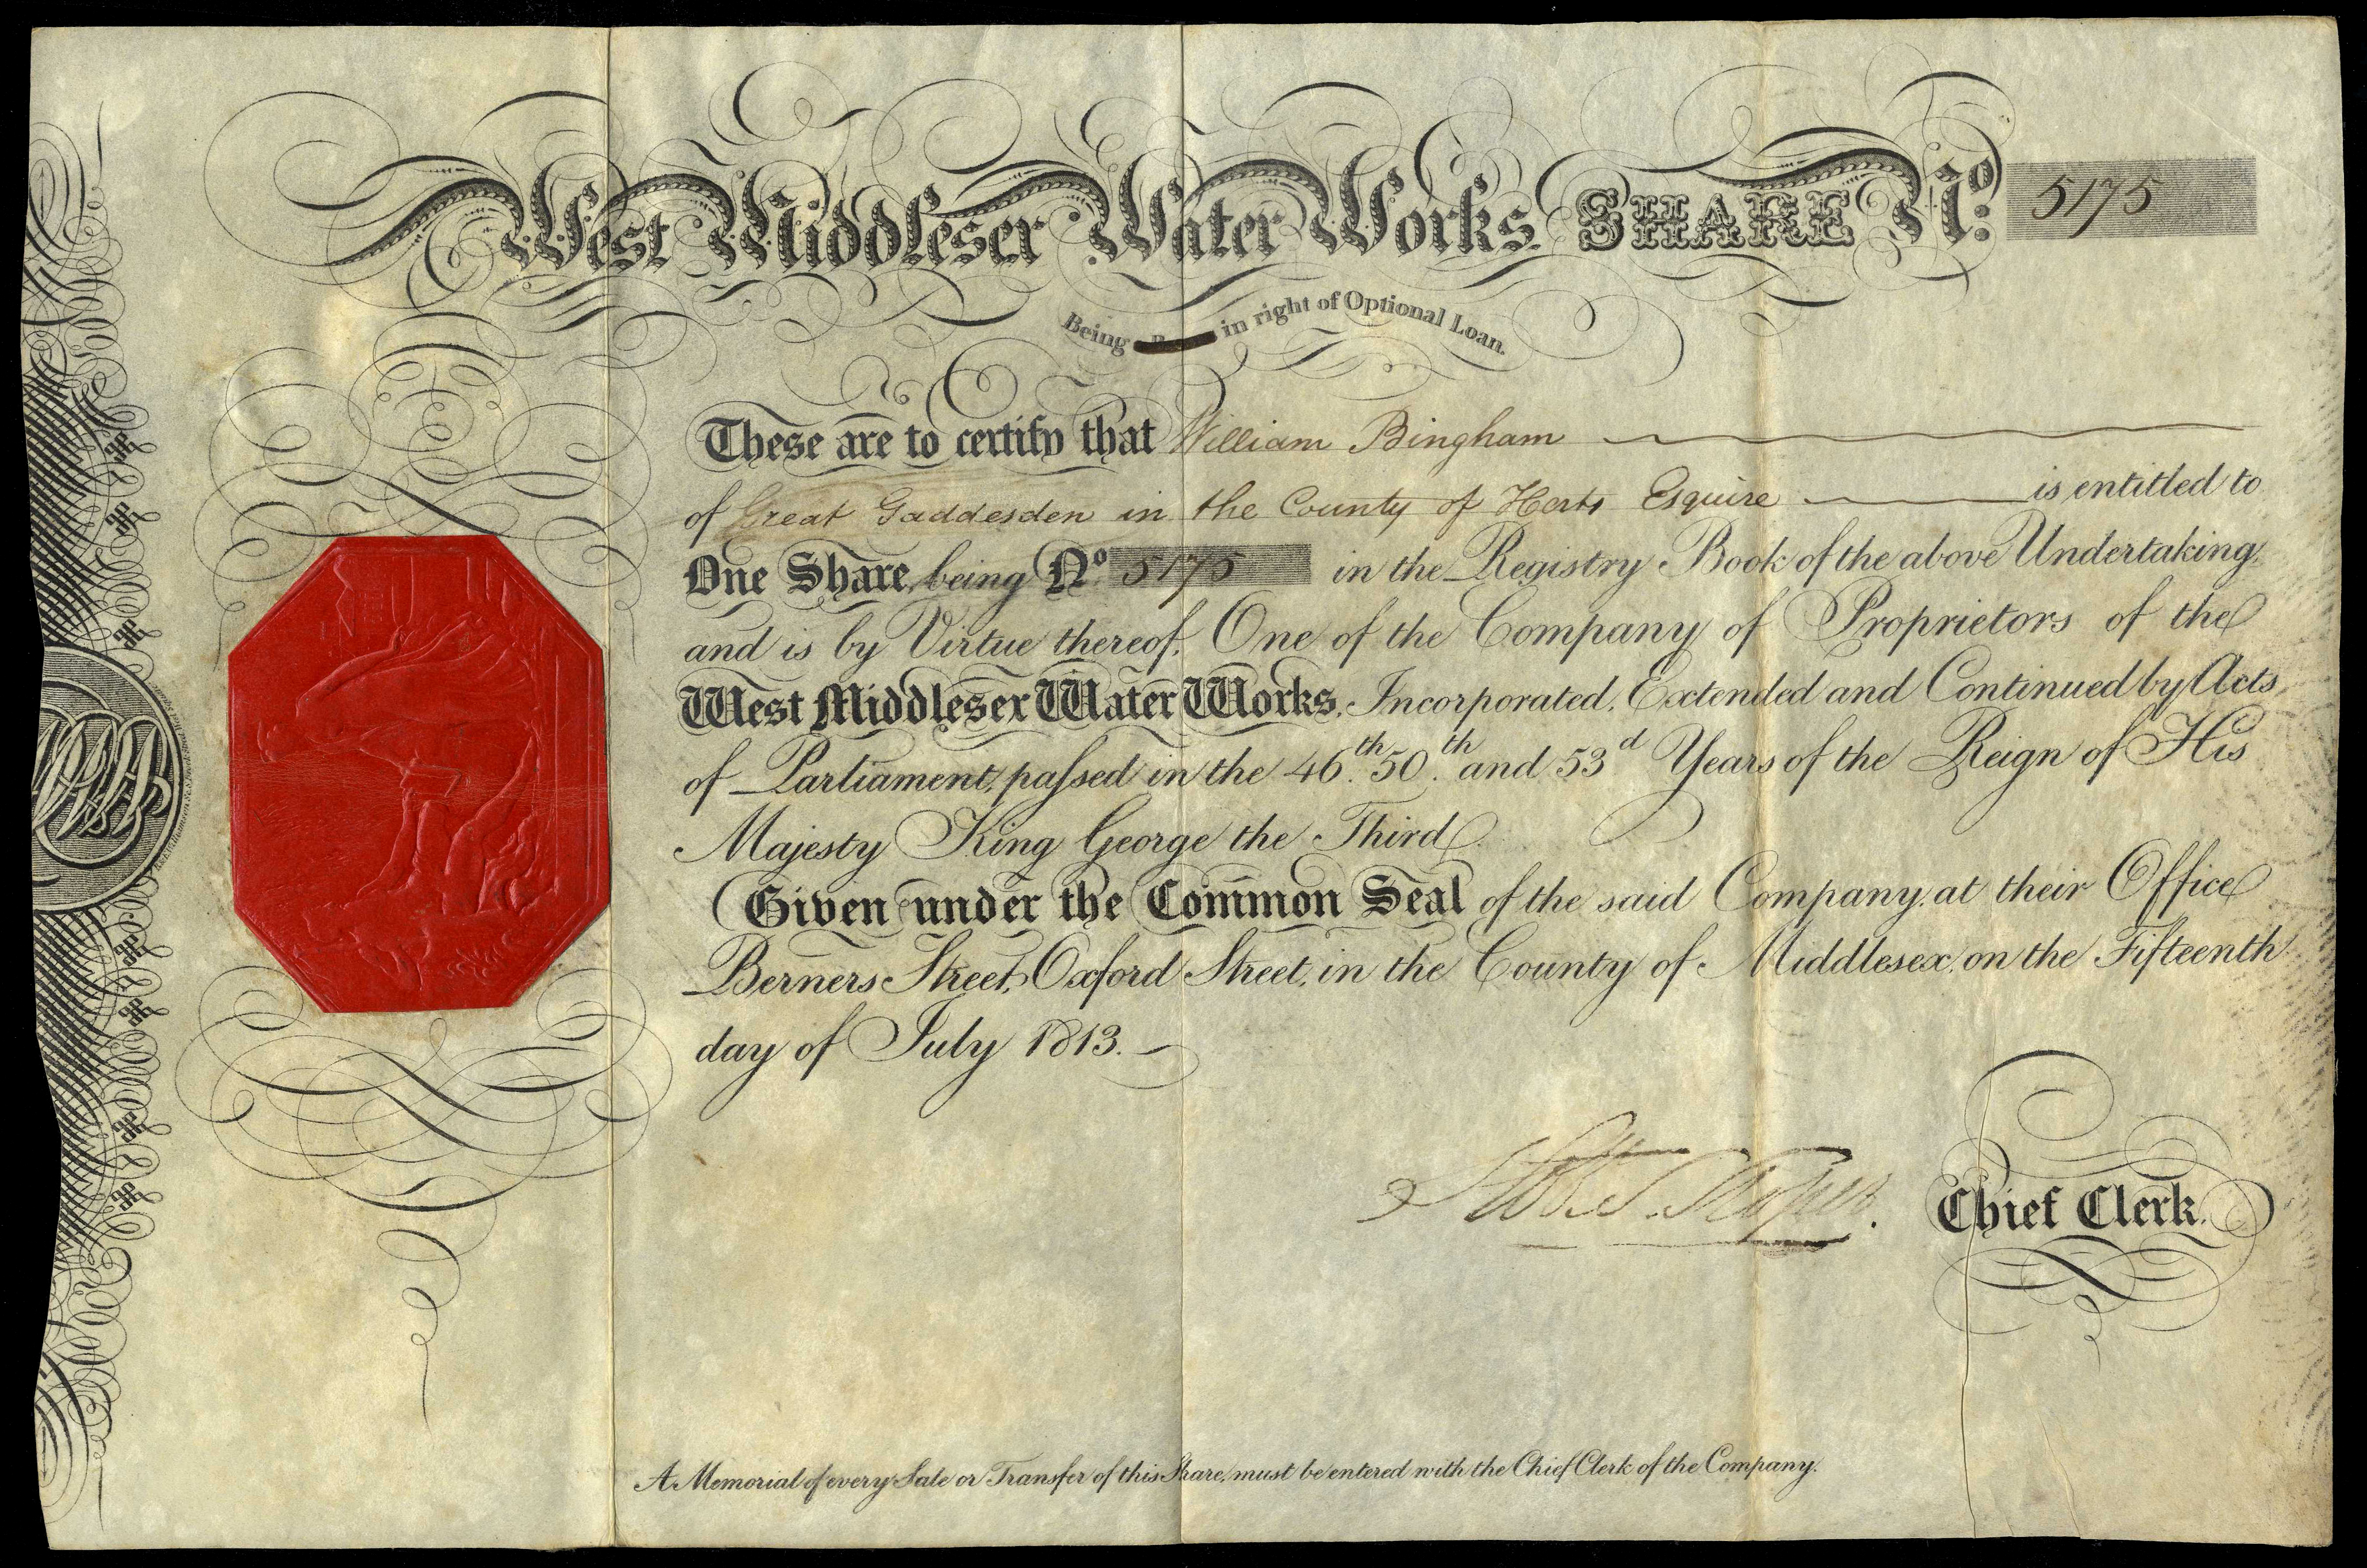 West Middlesex Water Works SHARE No. 5175
Being in right of Optional Loan.
These are to certify that William Bingham
of Great Gaddesden in the County of Herts Esquire is entitled to
One Share, being No. 5175 in the Registry Book of the above Undertaking,
and is by Virtue thereof, One of the Company of Proprietors of the
West Middlesex Water Works, Incorporated, Extended and Continued by Acts
of Parliament, passed in the 46th. 50th. and 53d. Years of the Reign of His
Majesty King George the Third.
Given under the Common Seal of the said Company, at their Office
Berners Street, Oxford Street, in the County of Middlesex, on the Fifteenth
day of July 1813.
Chief Clerk.
A Memorial of every Sale or Transfer of this Share, must be entered with the Chief Clerk of the Company.